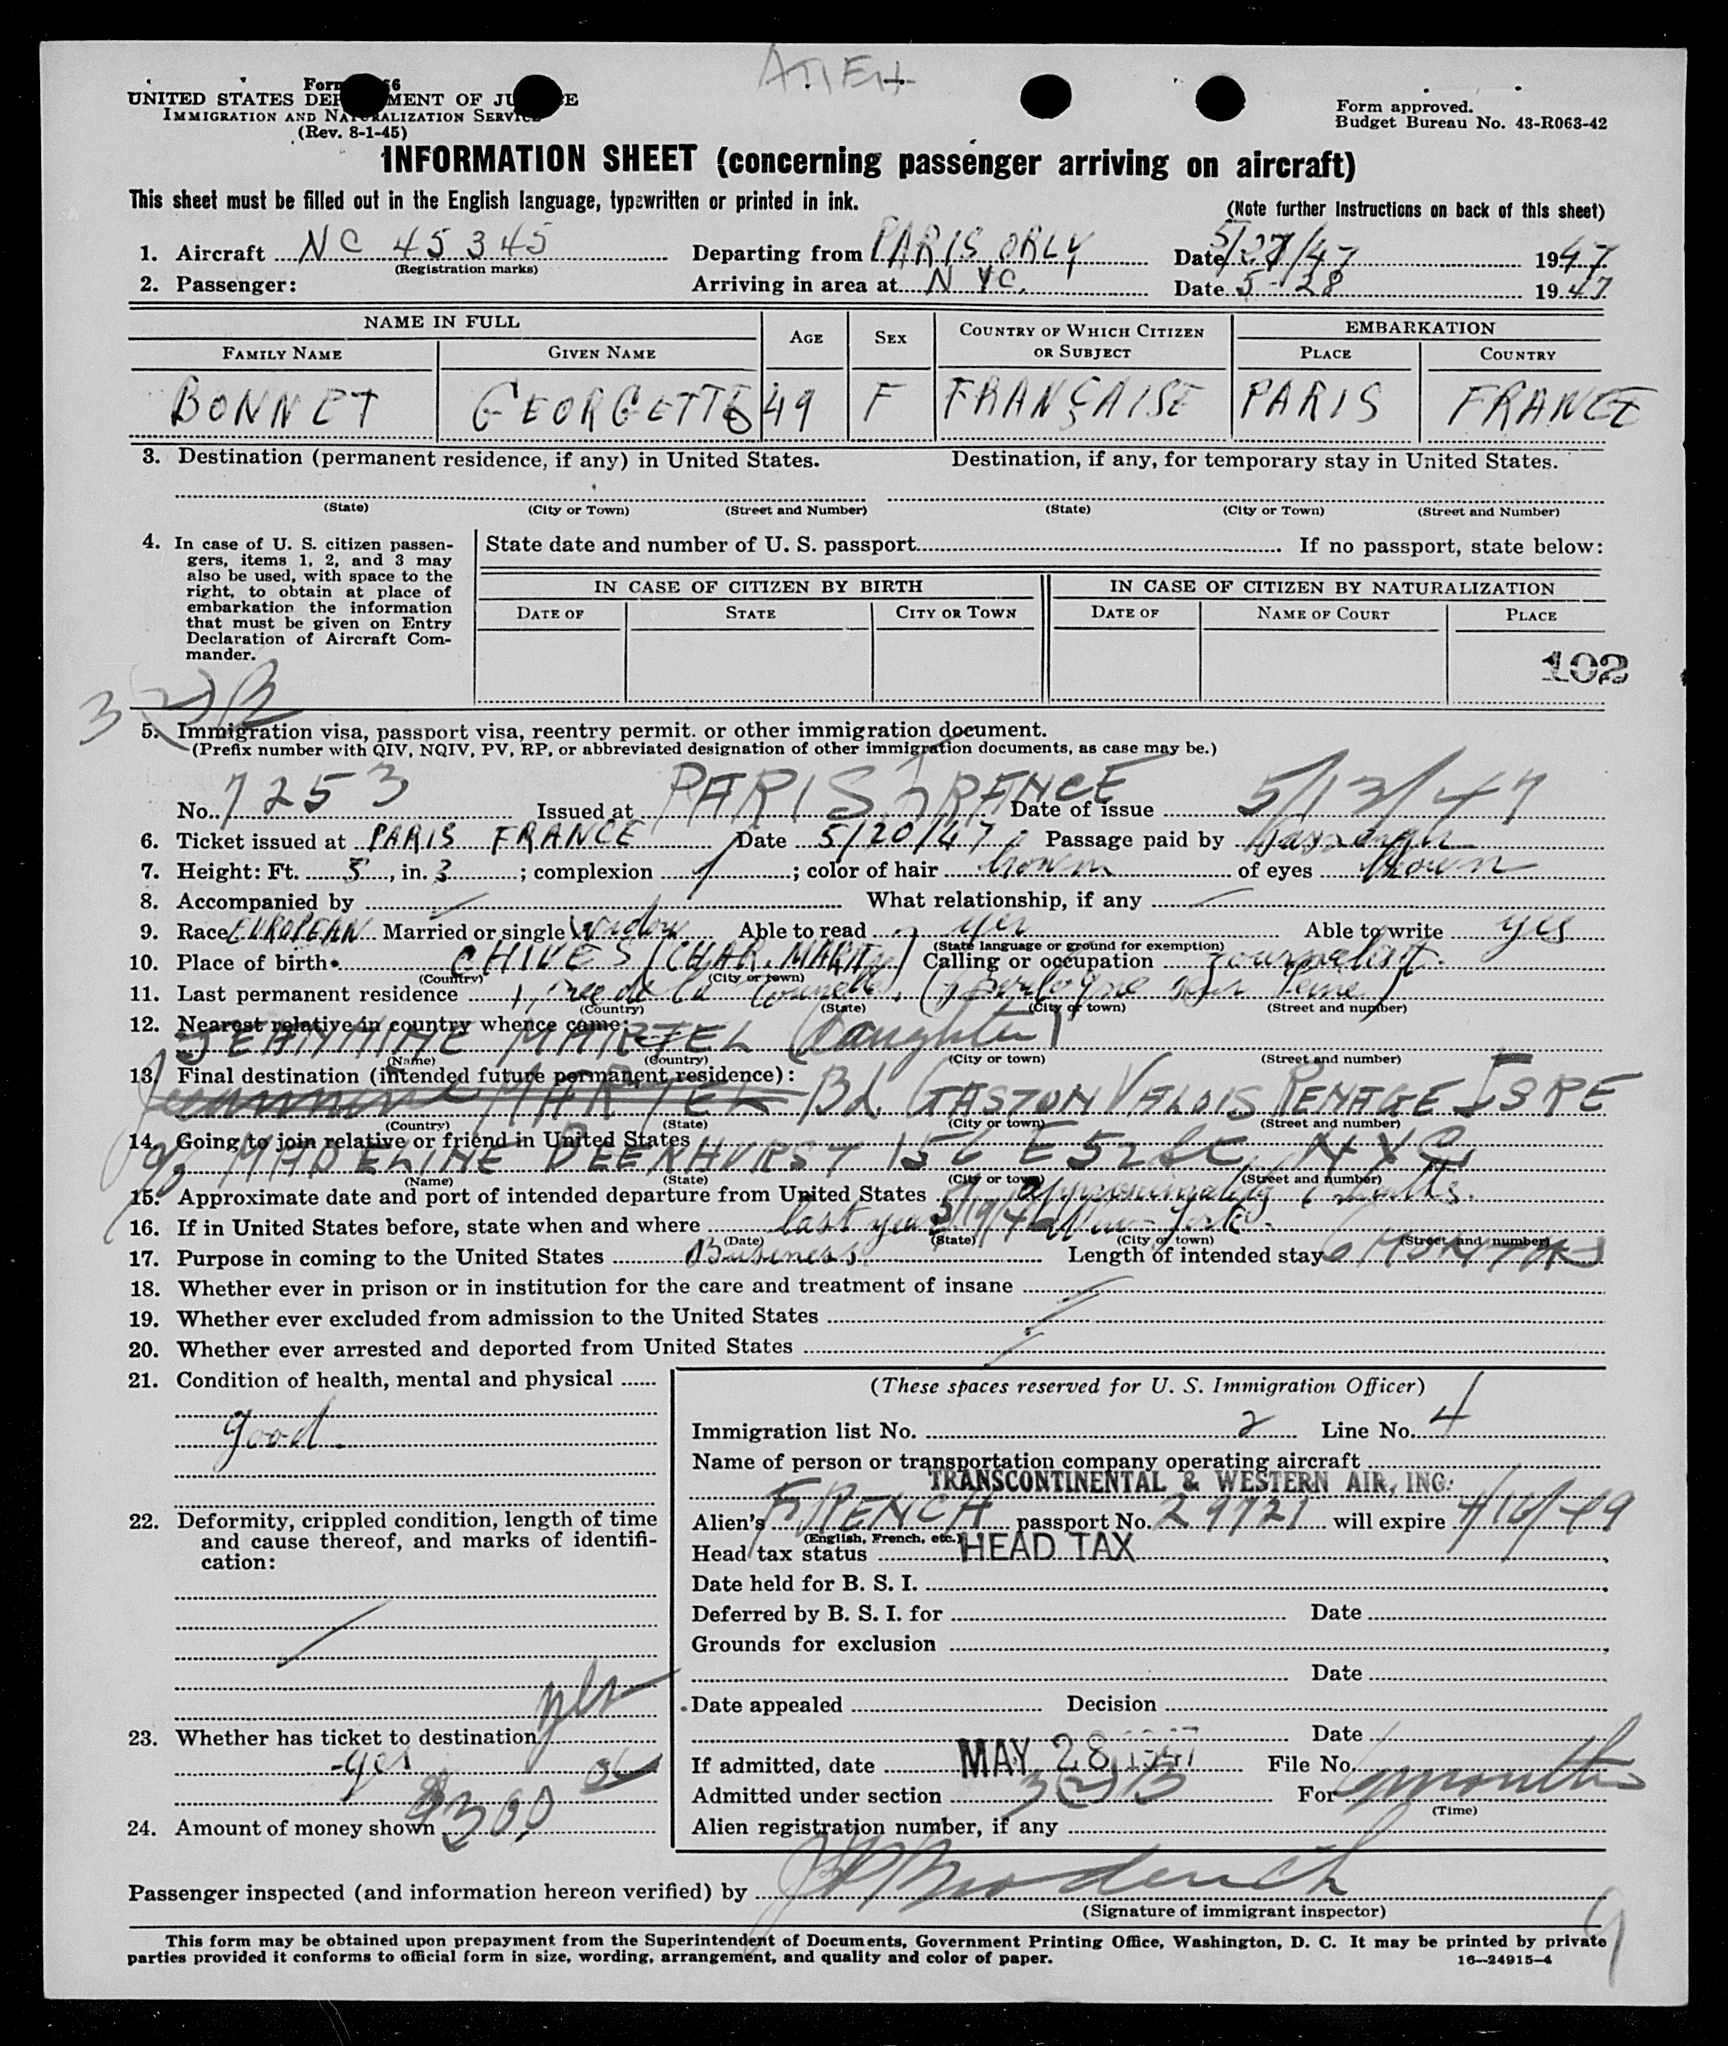 ATIEH
Form 66
UNITED STATES DEP MENT OF JU E
IMMIGRATION AND NATURALIZATION SERVICE
(Rev. 8-1-45)
Form approved.
Budget Bureau No. 43-R063-42
INFORMATION SHEET (concerning passenger arriving on aircraft)
This sheet must be filled out in the English language, typewritten or printed in ink.
(Note further instructions on back of this sheet)
1. Aircraft NC 45345 Departing from PARIS ORLY Date 5/27/47 1947
(Registration marks)
2. Passenger: Arriving in area at NYC. Date 5-28 1947
NAME IN FULL AGE SEX COUNTRY OF WHICH CITIZEN OR SUBJECT EMBARKATION
FAMILY NAME GIVEN NAME PLACE COUNTRY
BONNET GEORGETTE 49 F FRANÇAISE PARIS FRANCE
3. Destination (permanent residence, if any) in United States. Destination, if any, for temporary stay in United States.
(State) (City or Town) (Street and Number) (State) (City or Town) (Street and Number)
4. In case of U. S. citizen passengers, items 1, 2, and 3 may also be used, with space to the right, to obtain at place of embarkation the information that must be given on Entry Declaration of Aircraft Commander.
State date and number of U. S. passport If no passport, state below:
IN CASE OF CITIZEN BY BIRTH IN CASE OF CITIZEN BY NATURALIZATION
DATE OF STATE CITY OR TOWN DATE OF NAME OF COURT PLACE
102
3(2)B
5. Immigration visa, passport visa, reentry permit. or other immigration document.
(Prefix number with QIV, NQIV, PV, RP, or abbreviated designation of other immigration documents, as case may be.)
No. 7253 Issued at PARIS FRANCE Date of issue 5/13/47
6. Ticket issued at PARIS FRANCE Date 5/20/47 Passage paid by Passenger
7. Height: Ft. 5, in. 3; complexion /; color of hair brown of eyes brown
8. Accompanied by What relationship, if any
9. Race EUROPEAN Married or single Widow Able to read yes Able to write yes
(State language or ground for exemption)
10. Place of birth CHIVES (CHAR. MARIT) Calling or occupation journalist.
(Country) (City or town)
11. Last permanent residence 1, rue de la (Boulogne sur Seine)
(Country) (State) (City or town) (Street and number)
12. Nearest relative in country whence came:
JEANNINE MARTEL (Daughter)
(Name) (Country) (City or town) (Street and number)
13. Final destination (intended future permanent residence):
Jeannine MARTEL Bd. GASTON VALOIS RENAGE ISRE
(Country) (State) (City or town) (Street and number)
14. Going to join relative or friend in United States
c/o MADELINE DEERHURST 156 E 52 St. NYC
(Name) (State) (City or town) (Street and number)
15. Approximate date and port of intended departure from United States approximately 6 months.
16. If in United States before, state when and where last year 5/19/46 New York.
(Date) (State) (City or town) (Street and number)
17. Purpose in coming to the United States Business. Length of intended stay 6 MONTHS
18. Whether ever in prison or in institution for the care and treatment of insane
19. Whether ever excluded from admission to the United States
20. Whether ever arrested and deported from United States
21. Condition of health, mental and physical
good.
22. Deformity, crippled condition, length of time and cause thereof, and marks of identification:
yes
23. Whether has ticket to destination
yes
24. Amount of money shown $300
(These spaces reserved for U. S. Immigration Officer)
Immigration list No. 2 Line No. 4
Name of person or transportation company operating aircraft
TRANSCONTINENTAL & WESTERN AIR, INC.
Alien's FRENCH passport No. 29721 will expire 4/16/49
(English, French, etc.)
Head tax status HEAD TAX
Date held for B. S. I.
Deferred by B. S. I. for Date
Grounds for exclusion
Date
Date appealed Decision
Date
If admitted, date MAY 28 1947 File No.
Admitted under section 3(2)B For 6 months
(Time)
Alien registration number, if any
Passenger inspected (and information hereon verified) by
(Signature of immigrant inspector)
This form may be obtained upon prepayment from the Superintendent of Documents, Government Printing Office, Washington, D. C. It may be printed by private
parties provided it conforms to official form in size, wording, arrangement, and quality and color of paper. 16—24915-4
9